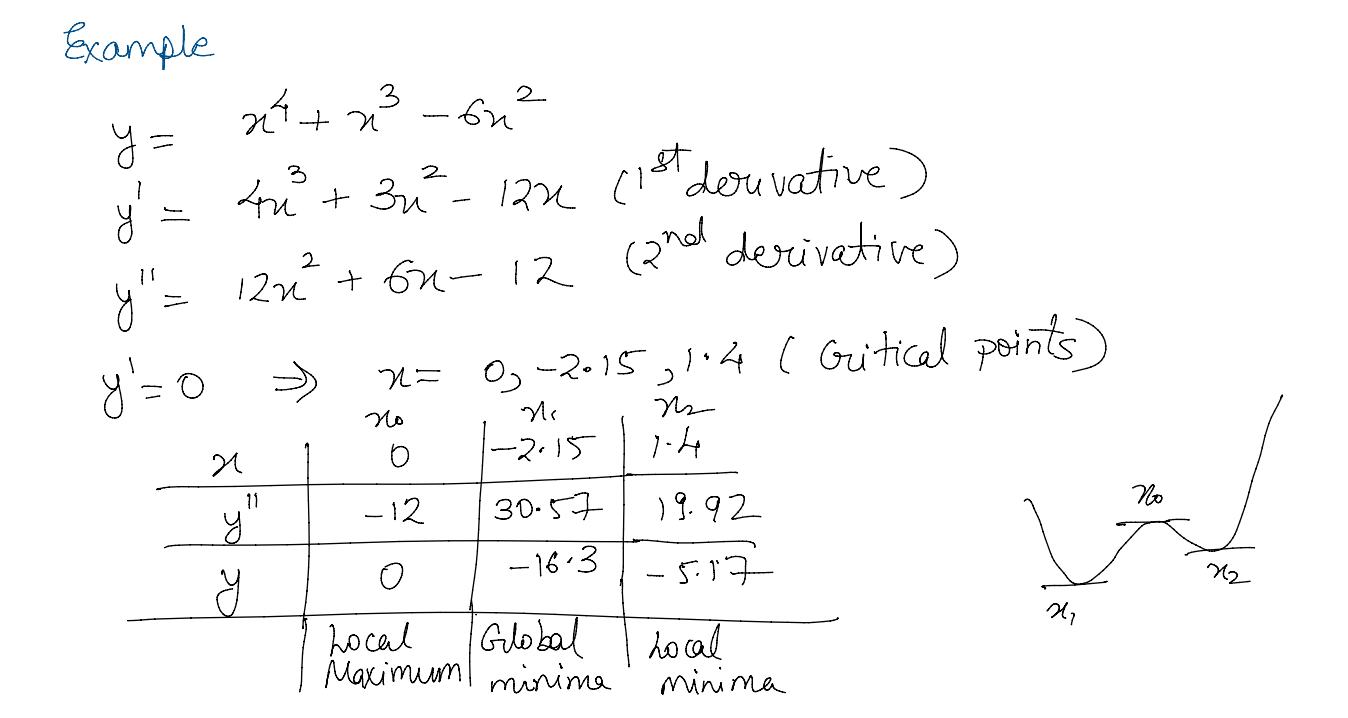 Example
y = x⁴ + x³ - 6x²
y' = 4x³ + 3x² - 12x (1st derivative)
y'' = 12x² + 6x - 12 (2nd derivative)
y' = 0 ⇒ x = 0, -2.15, 1.4 (Critical points)
x₀ x₁ x₂
x 0 -2.15 1.4
y'' -12 30.57 19.92
y 0 -16.3 -5.17
Local Maximum Global minima Local minima
x₀
x₂
x₁